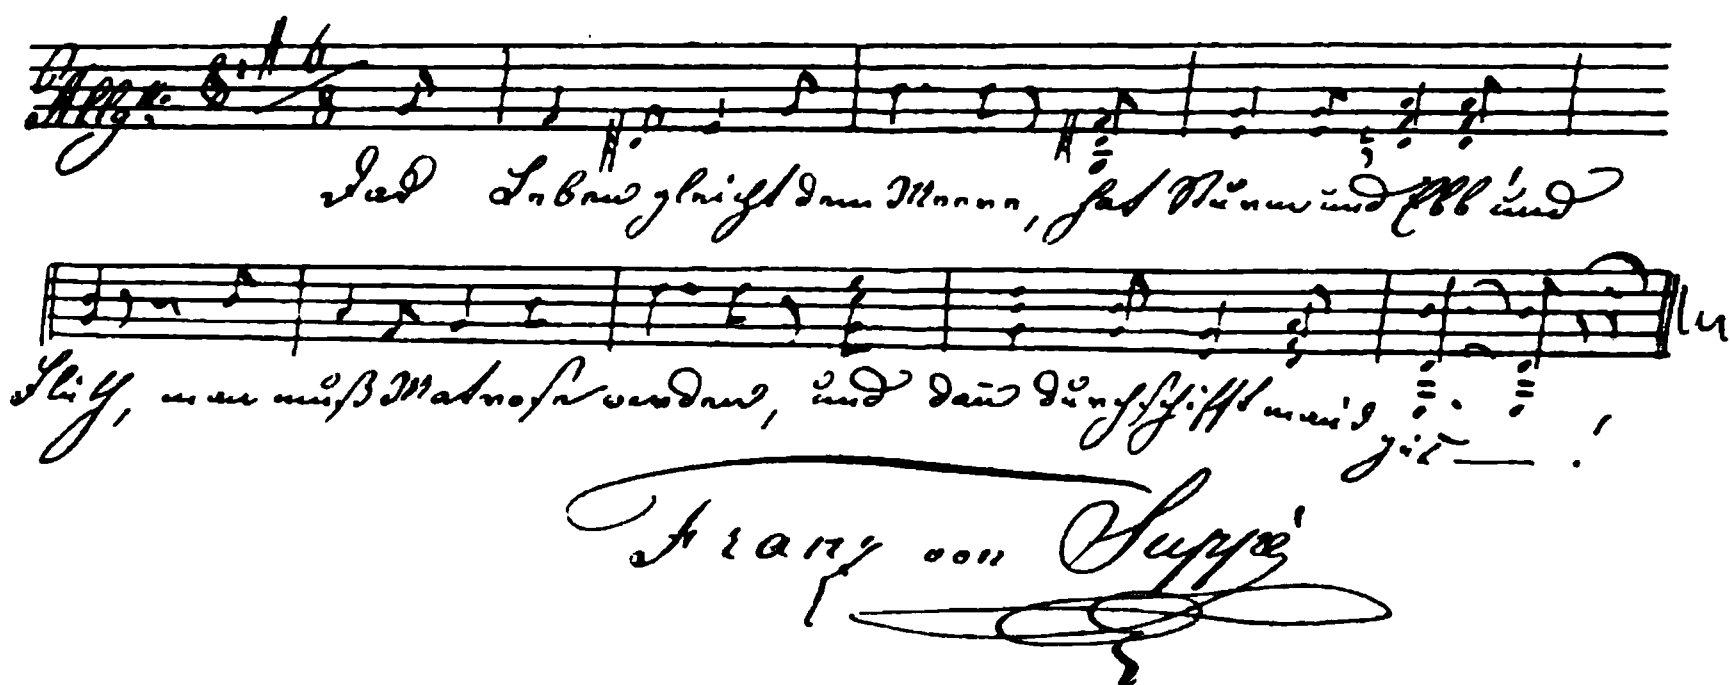 Allgº. 6/8
Das Leben gleicht dem Meere, hat Sturm und Ebb' und
Fluth, man muß Matrose werden, und dann durchschifft man's
gut — !
Franz von Suppé